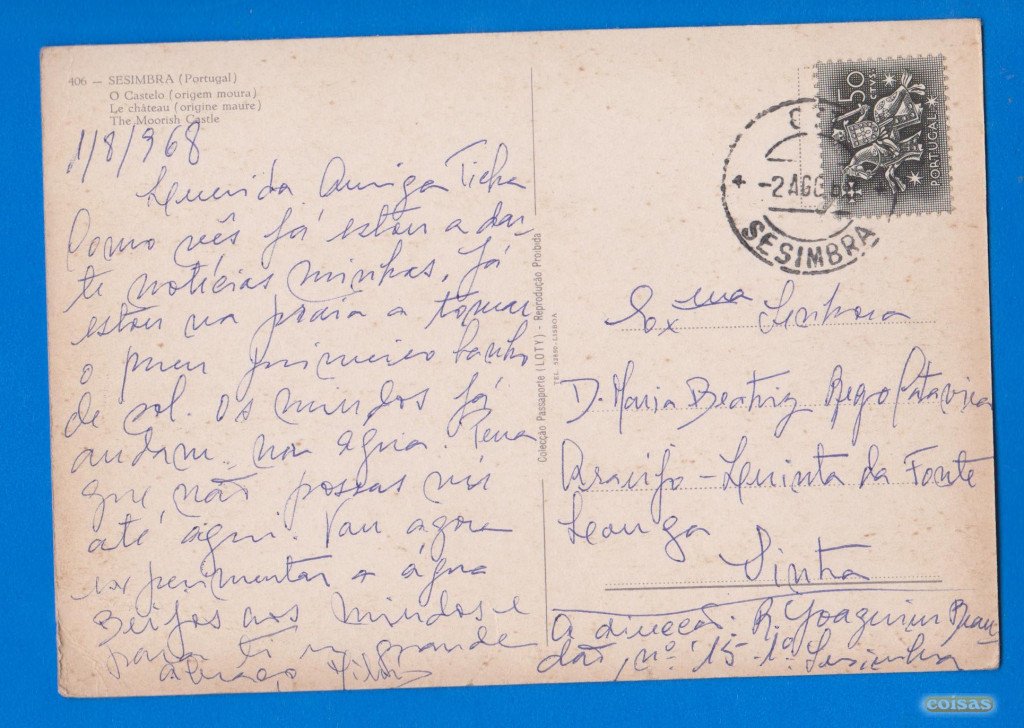 406 — SESIMBRA (Portugal)
O Castelo (origem moura)
Le château (origine maure)
The Moorish Castle
1/8/968
Querida Amiga Ticha
Como vês já estou a dar-
te notícias minhas. Já
estou na praia a tomar
o meu primeiro banho
de sol. Os miudos já
andam na água. Pena
que não possas vir
até aqui. Vou agora
experimentar a água
Beijos aos miudos e
para ti um grande
abraço
Colecção Passaporte (LOTY) - Reprodução Proibida
TEL. LISBOA
$50
CTVS.
PORTUGAL
-2 AGO 68
SESIMBRA
Exma Senhora
D. Maria Beatriz Rego
Araujo - Quinta da Fonte
Sintra
A direcção: R. Joaquim Bran-
dão, nº 15-1º Sesimbra
coisas